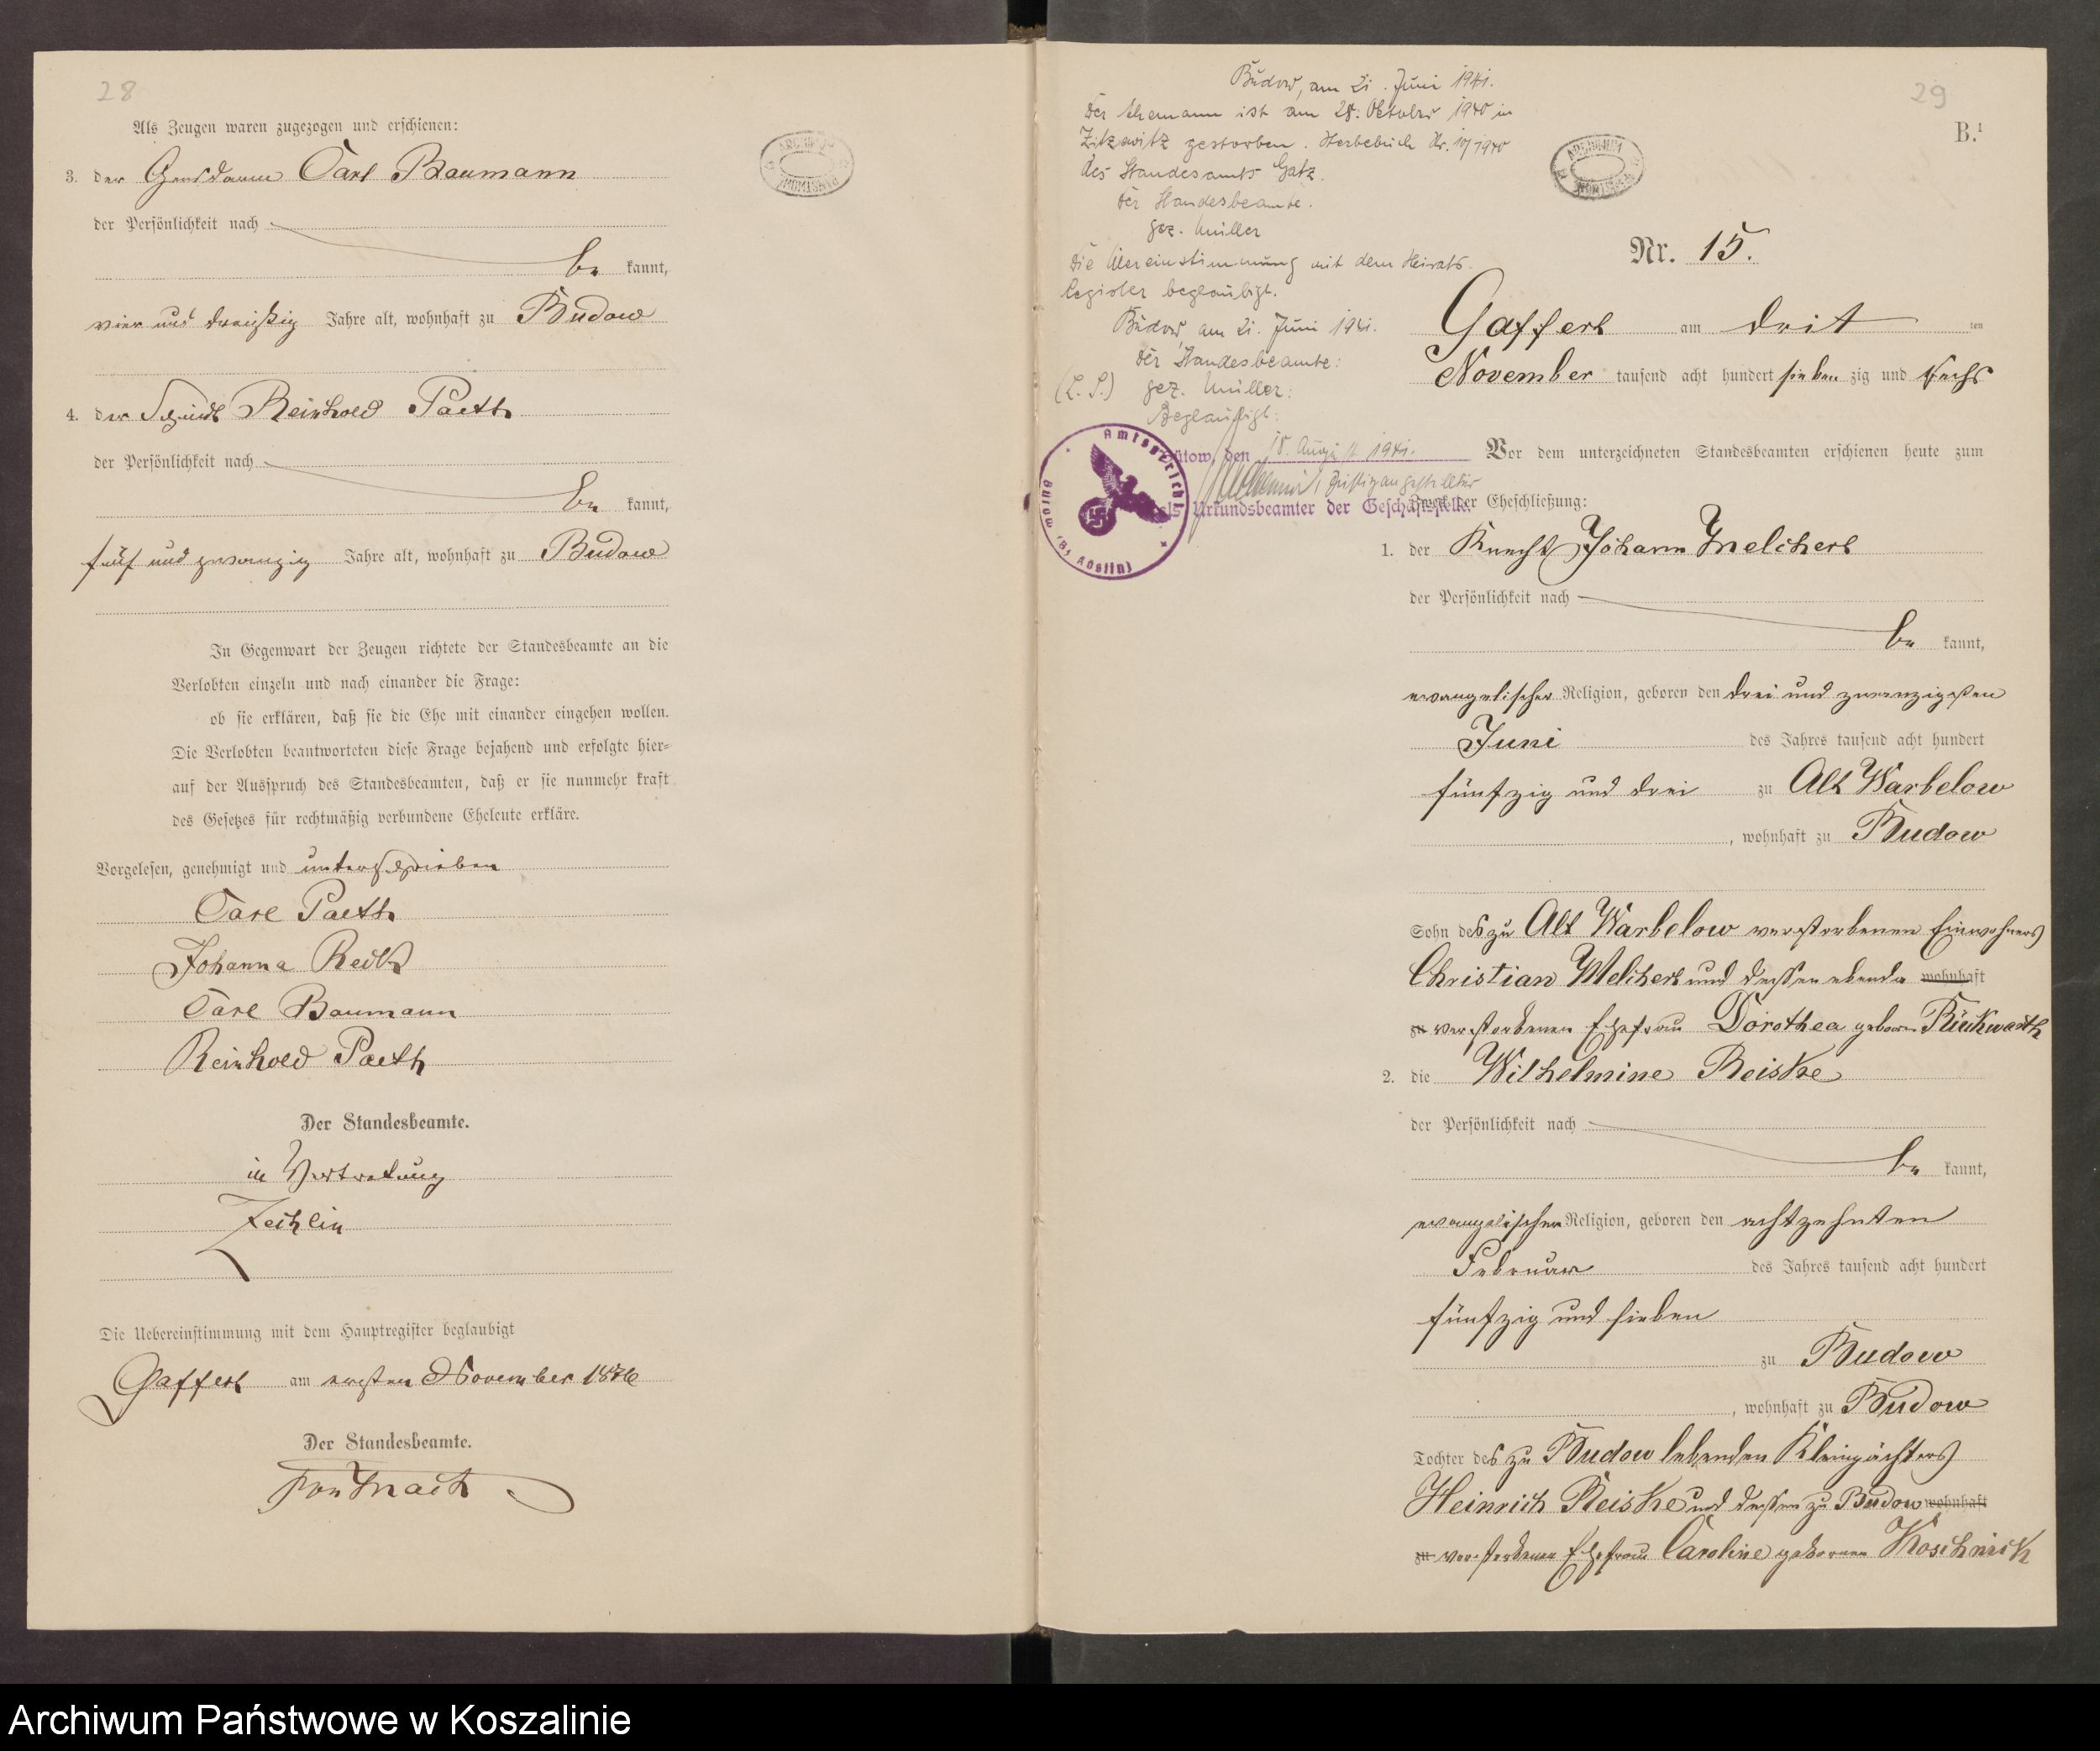 28
Als Zeugen waren zugezogen und erschienen:
3. der Gensdarm Carl Baumann
der Persönlichkeit nach
be kannt,
vier und dreißig Jahre alt, wohnhaft zu Budow
4. der Reinhold Paeth
der Persönlichkeit nach
be kannt,
fünf und zwanzig Jahre alt, wohnhaft zu Budow
In Gegenwart der Zeugen richtete der Standesbeamte an die
Verlobten einzeln und nach einander die Frage:
ob sie erklären, daß sie die Ehe mit einander eingehen wollen.
Die Verlobten beantworteten diese Frage bejahend und erfolgte hier=
auf der Ausspruch des Standesbeamten, daß er sie nunmehr kraft
des Gesetzes für rechtmäßig verbundene Eheleute erkläre.
Vorgelesen, genehmigt und unterschrieben
Carl Paeth
Johanna
Carl Baumann
Reinhold Paeth
Der Standesbeamte.
in Vertretung
Zechlin
Die Uebereinstimmung mit dem Hauptregister beglaubigt
Gaffert am ersten November 1876
Der Standesbeamte.
29
B.¹
Budow, am 21. Juni 1941.
Der Ehemann ist am 28. Oktober 1940 in
Zitzewitz gestorben. Sterbebuch Nr. 17/1940
des Standesamts Gatz.
Der Standesbeamte.
gez. Müller
Die Übereinstimmung mit dem Heirats-
Register beglaubigt.
Budow, am 21. Juni 1941.
Der Standesbeamte:
(L. S.) gez. Müller:
Beglaubigt:
Bütow, den 18. August 1941.
Justizangestellter
als Urkundsbeamter der Geschäftsstelle.
Amtsgericht
Bütow (Bz Köslin)
Nr. 15.
Gaffert am drit ten
November tausend acht hundert sieben zig und sechs
Vor dem unterzeichneten Standesbeamten erschienen heute zum
Zweck der Eheschließung:
1. der Knecht Johann Melchert
der Persönlichkeit nach
be kannt,
evangelischer Religion, geboren den drei und zwanzigsten
Juni des Jahres tausend acht hundert
fünfzig und drei zu Alt Warbelow
, wohnhaft zu Budow
Sohn des zu Alt Warbelow verstorbenen Einwohners
Christian Melchert und dessen ebenda wohnhaft
zu verstorbenen Ehefrau Dorothea geboren Rückwardt
2. die Wilhelmine Reiske
der Persönlichkeit nach
be kannt,
evangelischer Religion, geboren den achtzehnten
Februar des Jahres tausend acht hundert
fünfzig und sieben
zu Budow
, wohnhaft zu Budow
Tochter des zu Budow lebenden Kleinpächters
Heinrich Reiske und dessen zu Budow wohnhaft
zu verstorbenen Ehefrau Caroline geborenen Koschnick
Archiwum Państwowe w Koszalinie